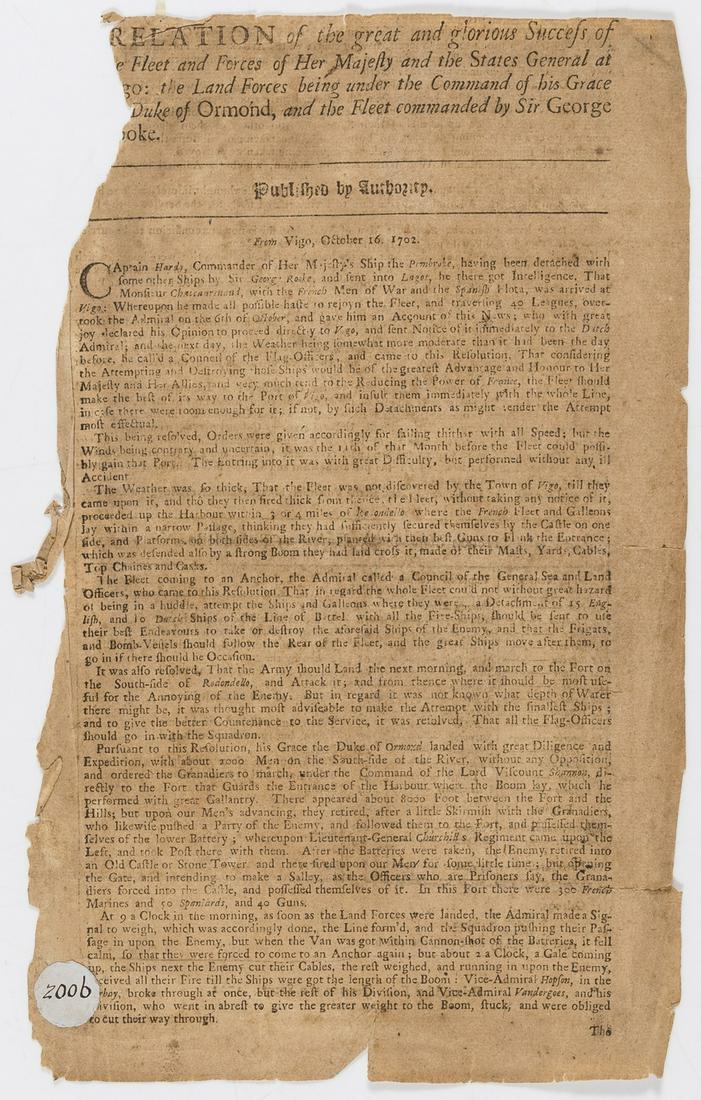 RELATION of the great and glorious Succeſs of
e Fleet and Forces of Her Majeſty and the States General at
go: the Land Forces being under the Command of his Grace
Duke of Ormond, and the Fleet commanded by Sir George
ooke.
Publiſhed by Authority.
From Vigo, October 16. 1702.
CAptain Hardy, Commander of Her Majeſty's Ship the Pembroke, having been detached with
ſome other Ships by Sir George Rooke, and ſent into Lagos, he there got Intelligence, That
Monſieur Chateaurenaud, with the French Men of War and the Spaniſh Flota, was arrived at
Vigo: Whereupon he made all poſſible haſte to rejoyn the Fleet, and traverſing 40 Leagues, over-
took the Admiral on the 6th of October, and gave him an Account of this News; who with great
joy declared his Opinion to proceed directly to Vigo, and ſent Notice of it immediately to the Dutch
Admiral; and the next day, the Weather being ſomewhat more moderate than it had been the day
before, he call'd a Council of the Flag-Officers, and came to this Reſolution, That conſidering
the Attempting and Deſtroying thoſe Ships would be of the greateſt Advantage and Honour to Her
Majeſty and Her Allies, and very much tend to the Reducing the Power of France, the Fleet ſhould
make the beſt of its way to the Port of Vigo, and inſult them immediately with the whole Line,
in caſe there were room enough for it; if not, by ſuch Detachments as might render the Attempt
moſt effectual.
This being reſolved, Orders were given accordingly for ſailing thither with all Speed; but the
Winds being contrary and uncertain, it was the 11th of that Month before the Fleet could poſſi-
bly gain that Port. The Entring into it was with great Difficulty, but performed without any ill
Accident
The Weather was ſo thick, That the Fleet was not diſcovered by the Town of Vigo, till they
came upon it, and thô they then fired thick from thence, the Fleet, without taking any notice of it,
proceeded up the Harbour within 3 or 4 miles of Redondello where the French Fleet and Galleons
lay within a narrow Paſſage, thinking they had ſufficiently ſecured themſelves by the Caſtle on one
ſide, and Platforms on both ſides of the River, planted with their beſt Guns to Flank the Entrance;
which was defended alſo by a ſtrong Boom they had laid croſs it, made of their Maſts, Yards, Cables,
Top Chaines and Casks.
The Fleet coming to an Anchor, the Admiral called a Council of the General Sea and Land
Officers, who came to this Reſolution That in regard the whole Fleet could not without great hazard
of being in a huddle, attempt the Ships and Galleons where they were, a Detachment of 15 Eng-
liſh, and 10 Dutch Ships of the Line of Battel with all the Fire-Ships, ſhould be ſent to uſe
their beſt Endeavours to take or deſtroy the aforeſaid Ships of the Enemy, and that the Frigats,
and Bomb-Veſſels ſhould follow the Rear of the Fleet, and the great Ships move after them, to
go in if there ſhould be Occaſion.
It was alſo reſolved, That the Army ſhould Land the next morning, and march to the Fort on
the South-ſide of Rodondello, and Attack it; and from thence where it ſhould be moſt uſe-
ful for the Annoying of the Enemy. But in regard it was not known what depth of Water
there might be, it was thought moſt adviſeable to make the Attempt with the ſmalleſt Ships;
and to give the better Countenance to the Service, it was reſolved, That all the Flag-Officers
ſhould go in with the Squadron.
Purſuant to this Reſolution, his Grace the Duke of Ormond landed with great Diligence and
Expedition, with about 2000 Men on the South-ſide of the River, without any Oppoſition,
and ordered the Granadiers to march, under the Command of the Lord Viſcount Shannon, di-
rectly to the Fort that Guards the Entrance of the Harbour where the Boom lay, which he
performed with great Gallantry. There appeared about 8000 Foot between the Fort and the
Hills; but upon our Men's advancing, they retired, after a little Skirmiſh with the Granadiers,
who likewiſe puſhed a Party of the Enemy, and followed them to the Fort, and poſſeſſed them-
ſelves of the lower Battery; whereupon Lieutenant-General Churchill's Regiment came upon the
Left, and took Poſt there with them. After the Batteries were taken, the Enemy retired into
an Old Caſtle or Stone Tower and there fired upon our Men for ſome little time; but opening
the Gate, and intending to make a Salley, as the Officers who are Priſoners ſay, the Grana-
diers forced into the Caſtle, and poſſeſſed themſelves of it. In this Fort there were 300 French
Marines and 50 Spaniards, and 40 Guns.
At 9 a Clock in the morning, as ſoon as the Land Forces were landed, the Admiral made a Sig-
nal to weigh, which was accordingly done, the Line form'd, and the Squadron puſhing their Paſ-
ſage in upon the Enemy, but when the Van was got within Cannon-ſhot of the Batteries, it fell
calm, ſo that they were forced to come to an Anchor again; but about 2 a Clock, a Gale coming
up, the Ships next the Enemy cut their Cables, the reſt weighed, and running in upon the Enemy,
eceived all their Fire till the Ships were got the length of the Boom: Vice-Admiral Hopſon, in the
rbay, broke through at once, but the reſt of his Diviſion, and Vice-Admiral Vandergoes, and his
iviſion, who went in abreſt to give the greater weight to the Boom, ſtuck, and were obliged
to cut their way through.
The
200b